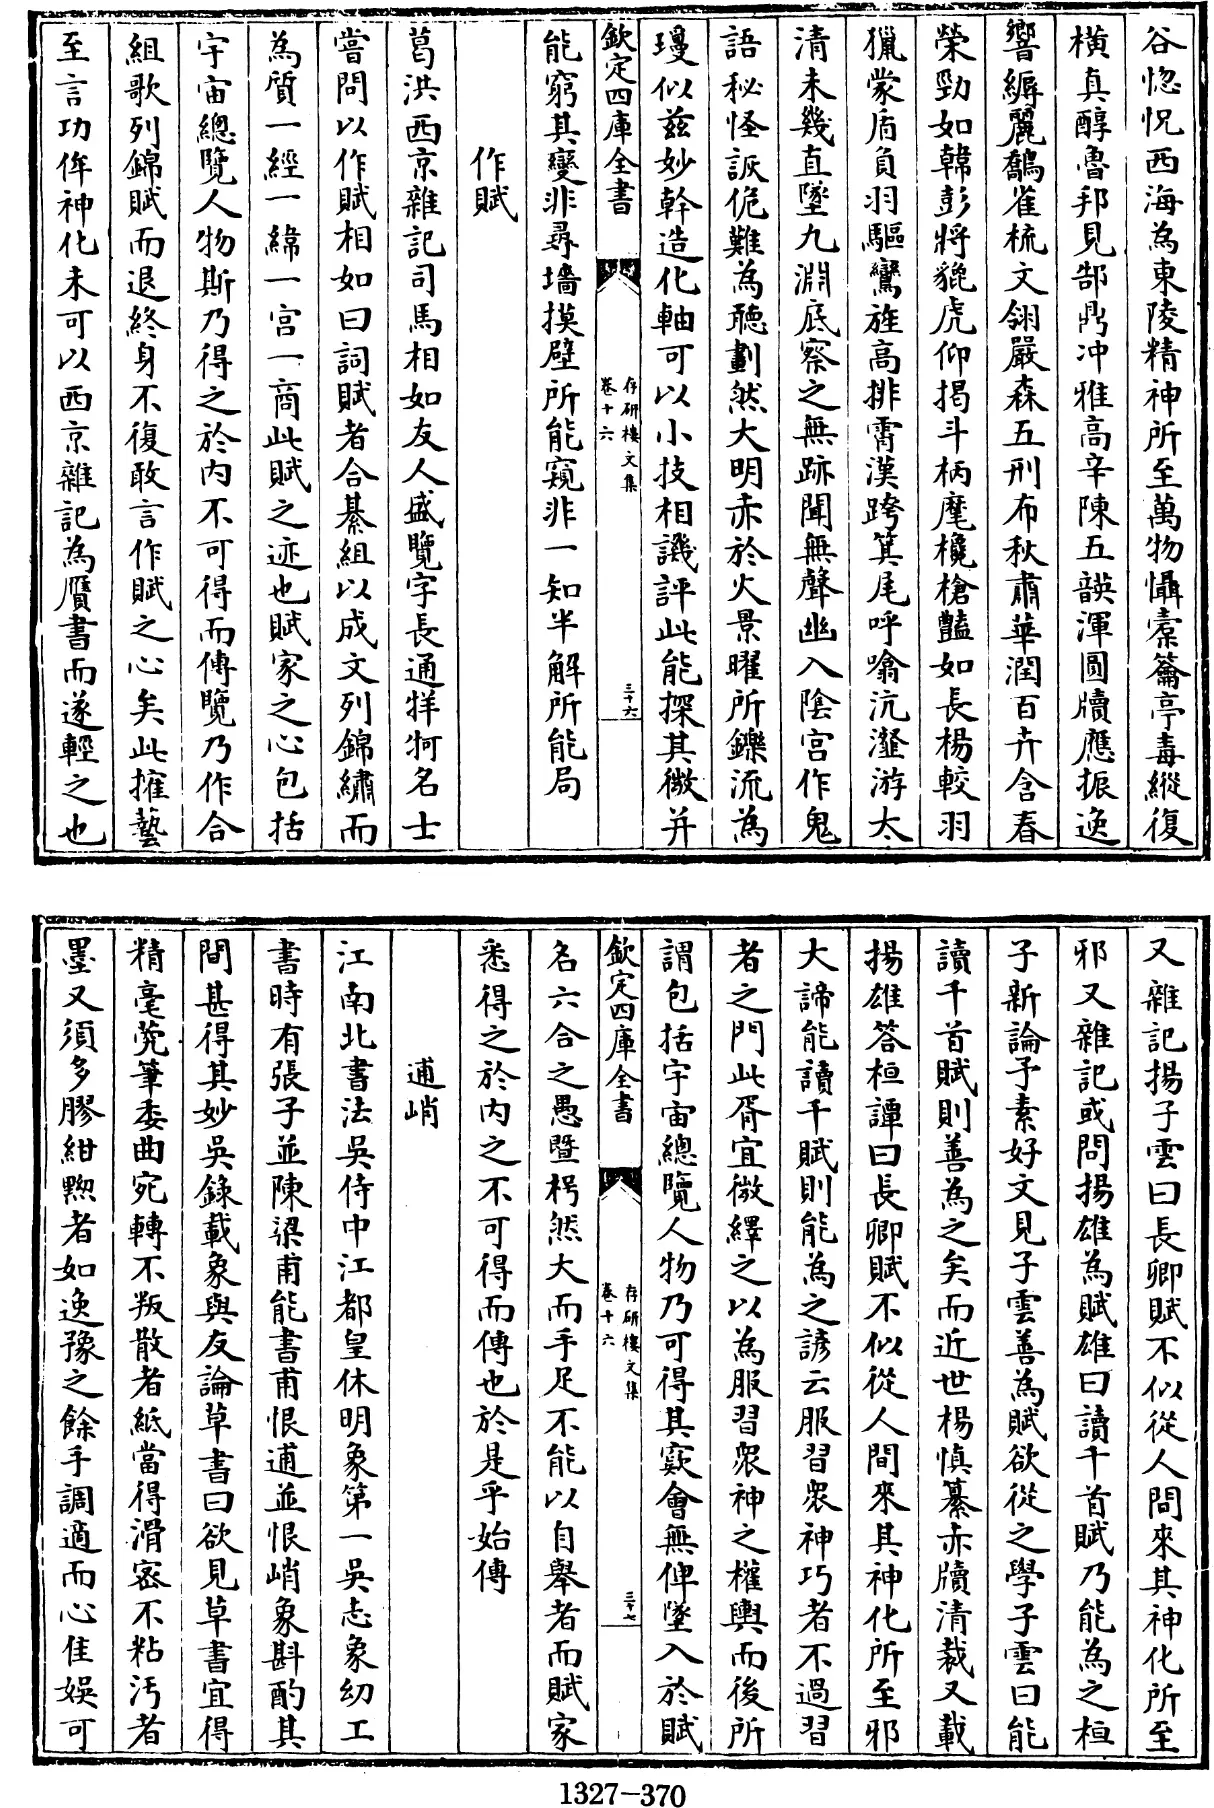 谷惚怳西海為東陵精神所至萬物懾橐籥亭毒縱復
横真醇魯邦見郜鼎冲雅高辛陳五韺渾圓牘應振逸
響縟麗鷸雀梳文翎嚴森五刑布秋肅華潤百卉含春
榮勁如韓彭將貔虎仰揭斗柄麾欃槍豔如長楊較羽
獵蒙盾負羽驅鸞旌高排霄漢跨箕尾呼噏沆瀣游太
清未幾直墜九淵底察之無跡聞無聲幽入陰宫作鬼
語秘怪詼佹難為聽劃然大明赤於火景曜所鑠流為
瓊似兹妙幹造化軸可以小技相譏評此能探其微并
欽定四庫全書
存研樓文集
卷十六
三十六
能窮其變非尋墻摸壁所能窺非一知半解所能局
作賦
葛洪西京雜記司馬相如友人盛覽字長通牂牁名士
嘗問以作賦相如曰詞賦者合綦組以成文列錦繡而
為質一經一緯一宫一商此賦之迹也賦家之心包括
宇宙總覽人物斯乃得之於内不可得而傳覽乃作合
組歌列錦賦而退終身不復敢言作賦之心矣此摧藝
至言功侔神化未可以西京雜記為贋書而遂輕之也
又雜記揚子雲曰長卿賦不似從人間來其神化所至
邪又雜記或問揚雄為賦雄曰讀千首賦乃能為之桓
子新論予素好文見子雲善為賦欲從之學子雲曰能
讀千首賦則善為之矣而近世楊慎纂赤牘清裁又載
揚雄答桓譚曰長卿賦不似從人間來其神化所至邪
大諦能讀千賦則能為之諺云服習衆神巧者不過習
者之門此胥宜微繹之以為服習衆神之權輿而後所
謂包括宇宙總覽人物乃可得其窽會無俾墜入於賦
欽定四庫全書
存研樓文集
卷十六
三十七
名六合之愚暨枵然大而手足不能以自舉者而賦家
悉得之於内之不可得而傳也於是乎始傳
逋峭
江南北書法吳侍中江都皇休明象第一吳志象幼工
書時有張子並陳梁甫能書甫恨逋並恨峭象斟酌其
間甚得其妙吳錄載象與友論草書曰欲見草書宜得
精毫薨筆委曲宛轉不叛散者紙當得滑密不粘汚者
墨又須多膠紺黝者如逸豫之餘手調適而心佳娛可
1327-370